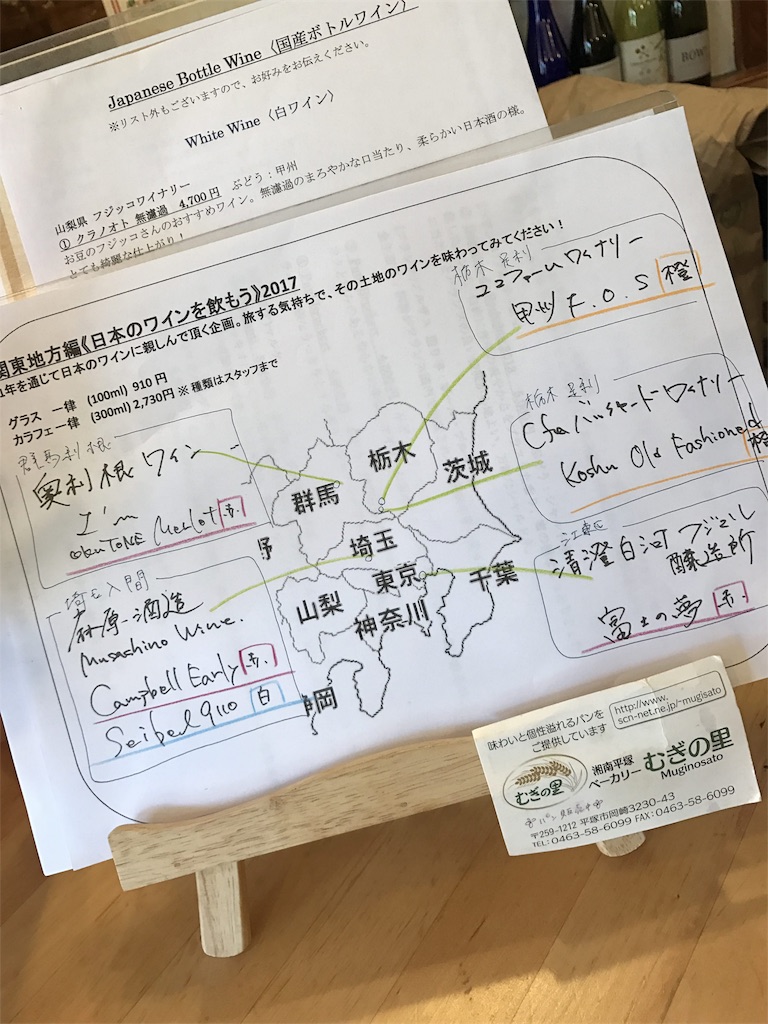 Japanese Bottle Wine〈国産ボトルワイン〉
※リスト外もございますので、お好みをお伝えください。
White Wine〈白ワイン〉
山梨県 フジッコワイナリー
① クラノオト 無濾過 4,700円 ぶどう：甲州
お豆のフジッコさんのおすすめワイン。無濾過のまろやかな口当たり、柔らかい日本酒の様。
とても綺麗な仕上がり！
関東地方編《日本のワインを飲もう》2017
1年を通じて日本のワインに親しんで頂く企画。旅する気持ちで、その土地のワインを味わってみてください！
グラス 一律 (100ml) 910円
カラフェ一律 (300ml) 2,730円 ※ 種類はスタッフまで
栃木 足利
ココファームワイナリー
甲州 F.O.S 橙
栃木 足利
Cfaバックヤードワイナリー
Koshu Old Fashioned 橙
群馬利根
奥利根ワイン
I'm
TONE Merlot 赤
埼玉入間
麻原酒造
Musashino Wine.
Campbell Early 赤
Seibel 9110 白
江東区
清澄白河 フジマル
醸造所
富士の夢 赤
栃木
群馬
茨城
野
埼玉
東京
千葉
山梨
神奈川
岡
味わいと個性溢れるパンを
ご提供しています
http://www.
scn-net.ne.jp/~mugisato
むぎの里
湘南平塚
ベーカリー むぎの里
Muginosato
〒259-1212 平塚市岡崎3230-43
TEL: 0463-58-6099 FAX: 0463-58-6099